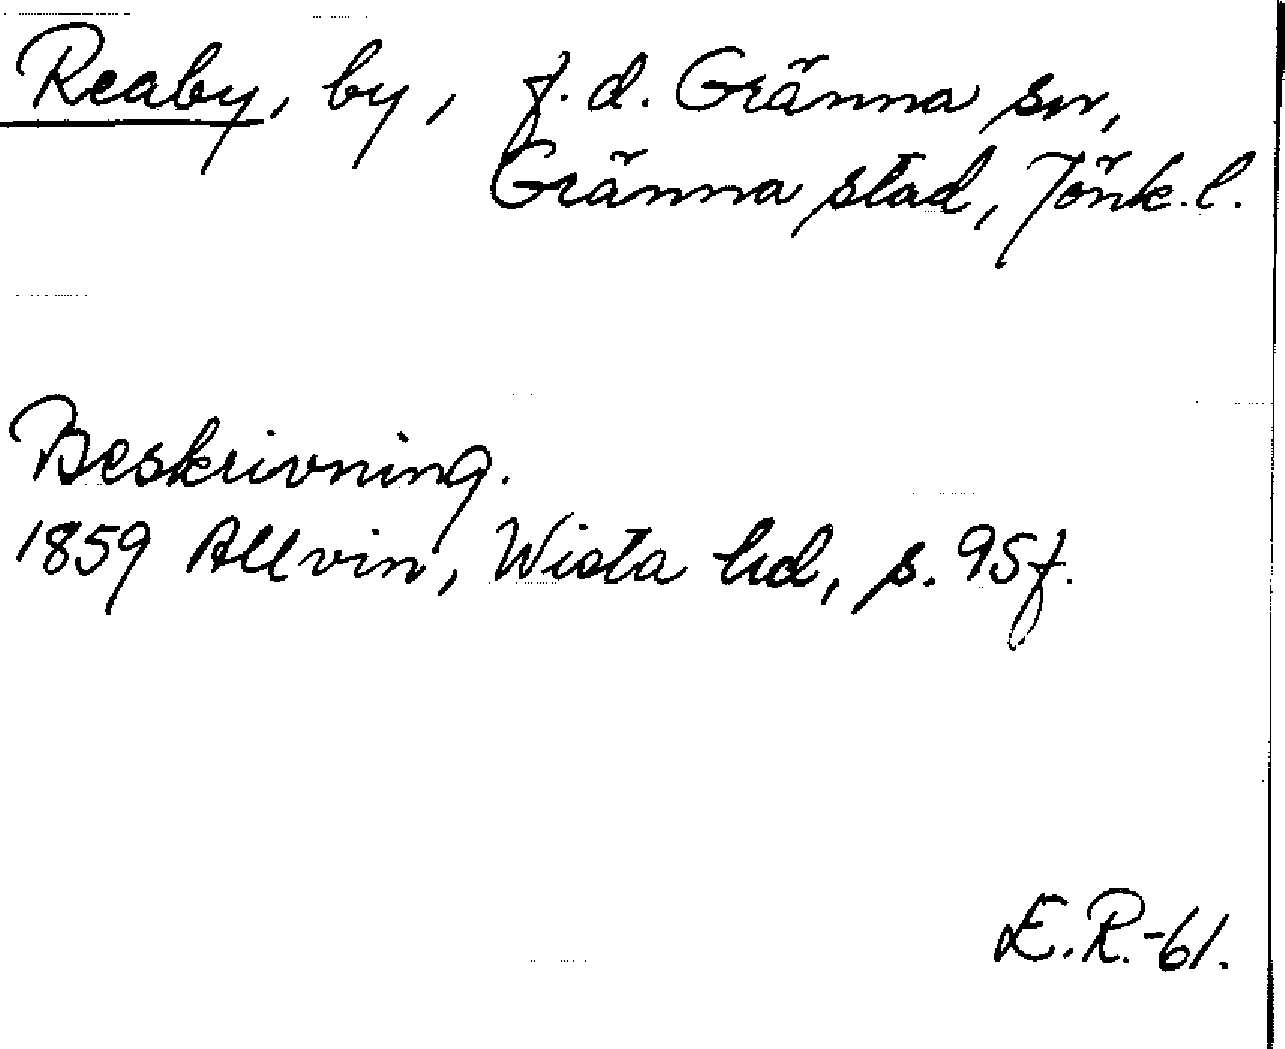 Reaby, by, f.d. Gränna sn,
Gränna stad, Jönk.l.
Beskrivning.
1859 Allvin, Wista hd, s. 95f.
E.R.-61.